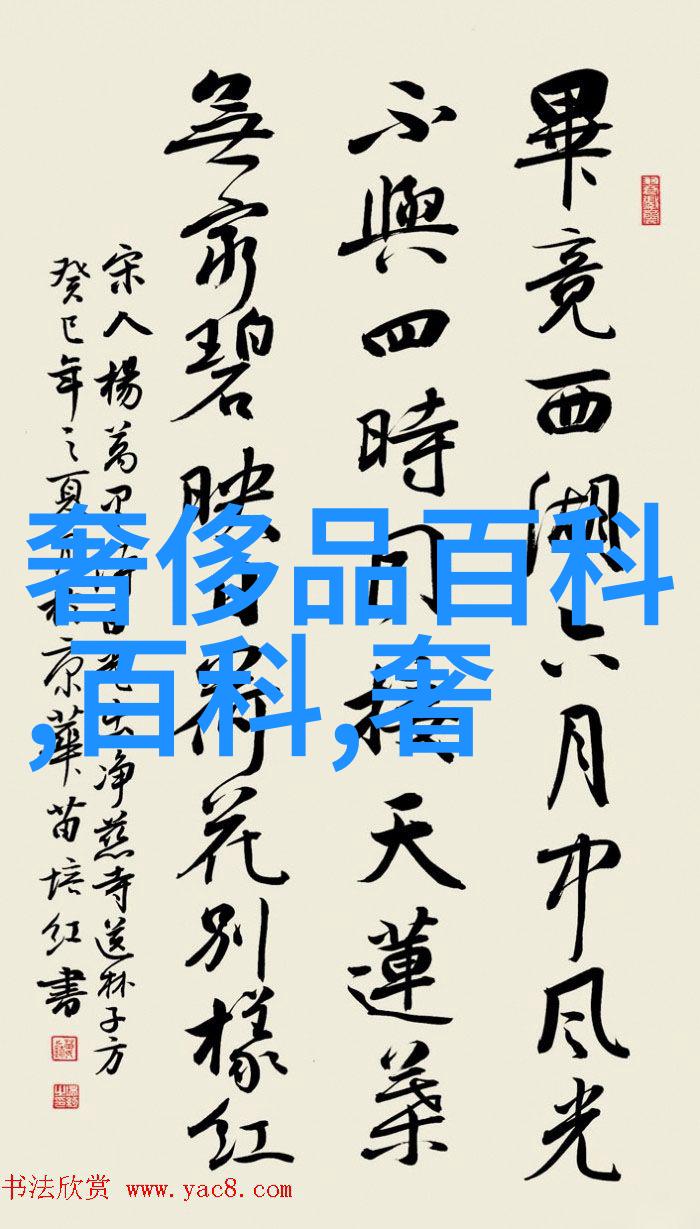 畢竟西湖六月中风光
不與四時同接天蓮葉
無窮碧映日荷花別樣紅
宋人楊萬里詩出净慈寺送林子方
癸巳年之夏京華苗培红書
奢侈品百科
,百科,奢
书法欣赏 www.yac8.com